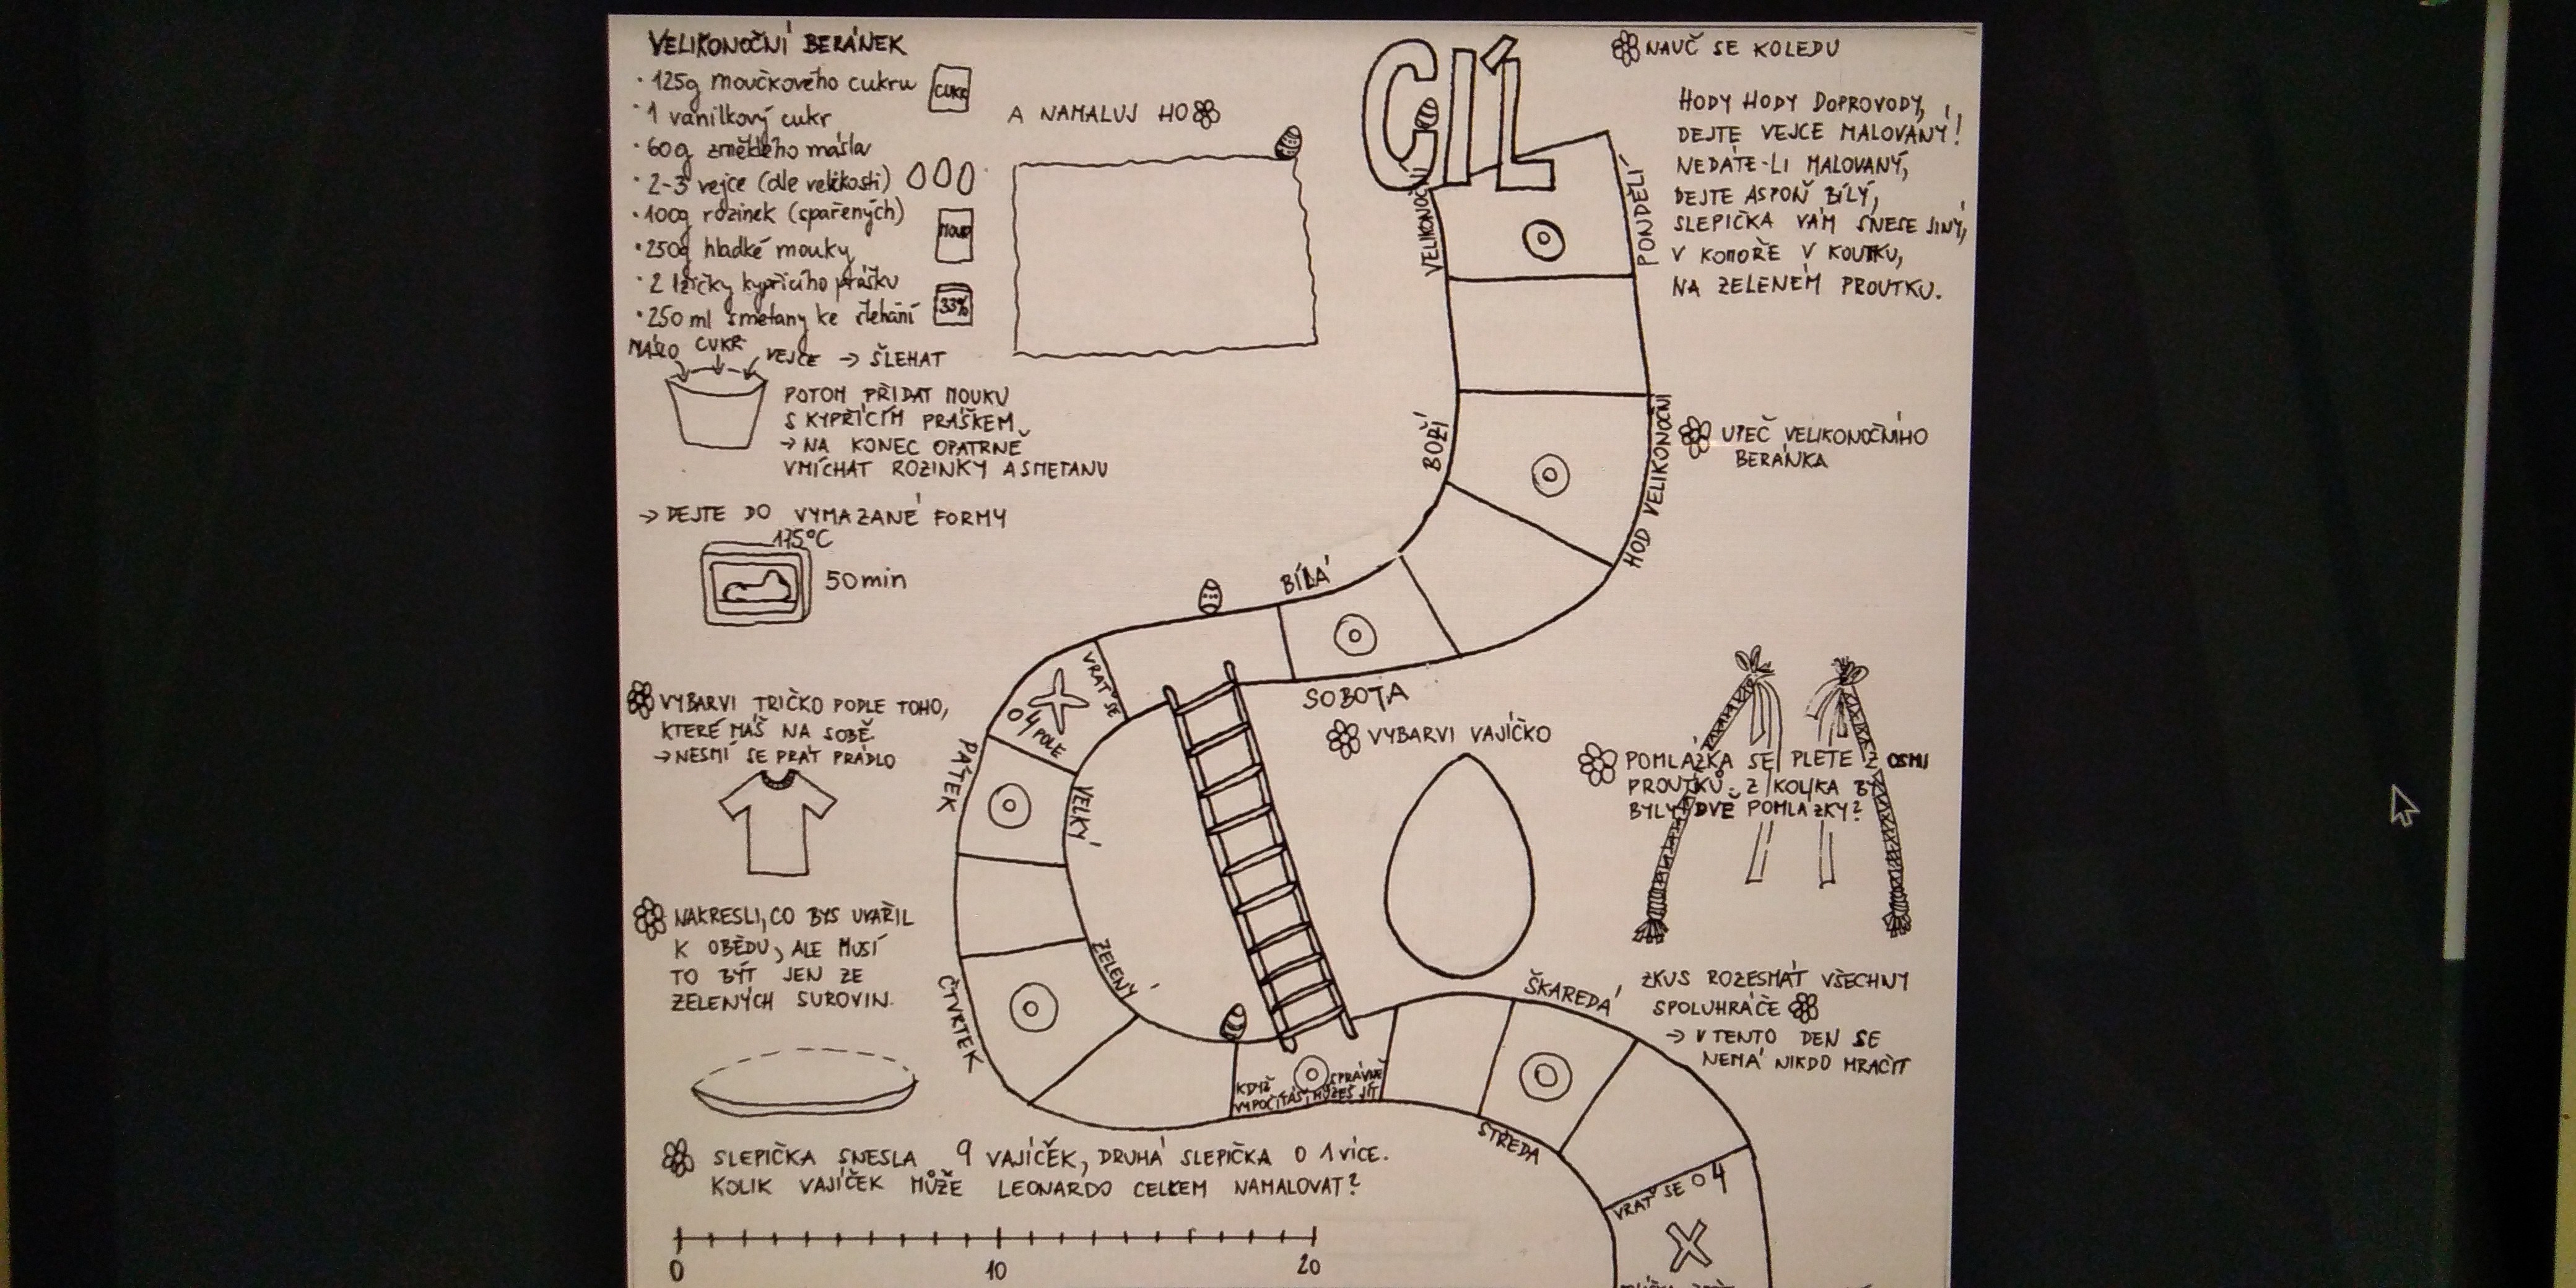 VELIKONOČNÍ BERÁNEK
· 125g moučkového cukru
CUKR
· 1 vanilkový cukr
· 60g změklého másla
· 2-3 vejce (dle velikosti)
· 100g rozinek (spařených)
· 250g hladké mouky
· 2 lžičky kypřícího prášku
· 250 ml smetany ke šlehání
33%
MÁSLO CUKR VEJCE → ŠLEHAT
POTOM PŘIDAT MOUKU
S KYPŘÍCÍM PRÁŠKEM
→ NA KONEC OPATRNĚ
VMÍCHAT ROZINKY A SMETANU
→ DEJTE DO VYMAZANÉ FORMY
175°C
50min
A NAMALUJ HO
CÍL
NAUČ SE KOLEDU
HODY HODY DOPROVODY,
DEJTE VEJCE MALOVANÝ!
NEDÁTE-LI MALOVANÝ,
DEJTE ASPOŇ BÍLÝ,
SLEPIČKA VÁM SNESE JINÝ,
V KOMOŘE V KOUTKU,
NA ZELENÉM PROUTKU.
VELIKONOČNÍ
PONDĚLÍ
BOŽÍ
HOD VELIKONOČNÍ
UPEČ VELIKONOČNÍHO
BERÁNKA
BÍLÁ
SOBOTA
VRAŤ SE
O 4 POLE
VYBARVI TRIČKO PODLE TOHO,
KTERÉ MÁŠ NA SOBĚ.
→ NESMÍ SE PRÁT PRÁDLO
PÁTEK
VELKÝ
VYBARVI VAJÍČKO
POMLÁZKA SE PLETE Z OSMI
PROUTKŮ. Z KOLIKA BY
BYLY DVĚ POMLÁZKY?
NAKRESLI, CO BYS UVAŘIL
K OBĚDU, ALE MUSÍ
TO BÝT JEN ZE
ZELENÝCH SUROVIN.
ZELENÝ
ČTVRTEK
ŠKAREDÁ
STŘEDA
ZKUS ROZESMÁT VŠECHNY
SPOLUHRÁČE
→ V TENTO DEN SE
NEMÁ NIKDO MRAČIT
KDYŽ SPRÁVNĚ
VYPOČÍTÁŠ, MŮŽEŠ JÍT
SLEPIČKA SNESLA 9 VAJÍČEK, DRUHÁ SLEPIČKA O 1 VÍCE.
KOLIK VAJÍČEK MŮŽE LEONARDO CELKEM NAMALOVAT?
VRAŤ SE O 4
0 10 20